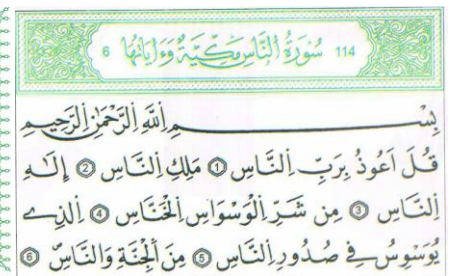 114 سُورَةُ النَّاسِ مَكِّيَّةٌ وَءَايَاتُهَا 6
بِسْمِ اِللَّهِ اِلرَّحْمَٰنِ اِلرَّحِيمِ
قُلَ اَعُوذُ بِرَبِّ اِلنَّاسِ 1 مَلِكِ اِلنَّاسِ 2 إِلَٰهِ
اِلنَّاسِ 3 مِن شَرِّ اِلْوَسْوَاسِ اِلْخَنَّاسِ 4 اِلذِے
يُوَسْوِسُ فِے صُدُورِ اِلنَّاسِ 5 مِنَ اَلْجِنَّةِ وَالنَّاسِ 6